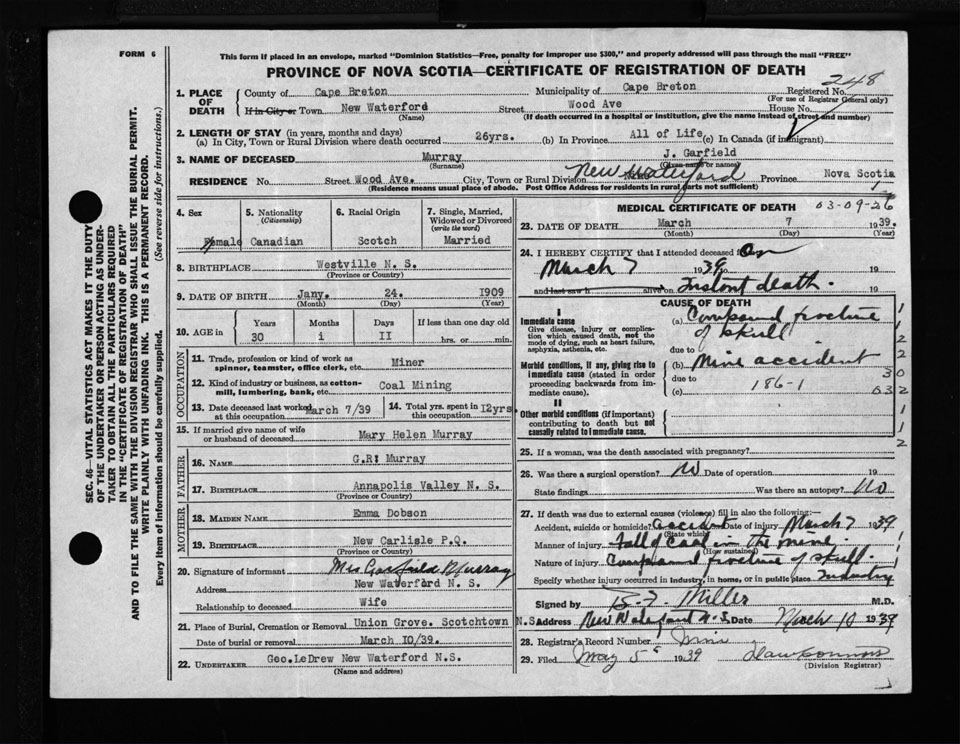 FORM 6
This form if placed in an envelope, marked "Dominion Statistics—Free, penalty for improper use $300," and properly addressed will pass through the mail "FREE"
PROVINCE OF NOVA SCOTIA—CERTIFICATE OF REGISTRATION OF DEATH
248
SEC. 46—VITAL STATISTICS ACT MAKES IT THE DUTY
OF THE UNDERTAKER OR PERSON ACTING AS UNDER-
TAKER TO OBTAIN ALL THE PARTICULARS REQUIRED
IN THE "CERTIFICATE OF REGISTRATION OF DEATH"
AND TO FILE THE SAME WITH THE DIVISION REGISTRAR WHO SHALL ISSUE THE BURIAL PERMIT.
WRITE PLAINLY WITH UNFADING INK. THIS IS A PERMANENT RECORD.
Every item of information should be carefully supplied. (See reverse side for instructions.)
1. PLACE OF DEATH County of Cape Breton Municipality of Cape Breton Registered No.
(For use of Registrar General only)
If in City or Town New Waterford Street Wood Ave House No.
(Name) (If death occurred in a hospital or institution, give the name instead of street and number)
2. LENGTH OF STAY (in years, months and days)
(a) In City, Town or Rural Division where death occurred 26yrs. (b) In Province All of Life (c) In Canada (if immigrant)
3. NAME OF DECEASED Murray J. Garfield
(Surname) (Given name or names)
RESIDENCE No. Street Wood Ave. City, Town or Rural Division New Waterford Province Nova Scotia
(Residence means usual place of abode. Post Office Address for residents in rural parts not sufficient)
4. Sex 5. Nationality (Citizenship) 6. Racial Origin 7. Single, Married, Widowed or Divorced (write the word)
male Canadian Scotch Married
8. BIRTHPLACE Westville N. S.
(Province or Country)
9. DATE OF BIRTH Jany. 24. 1909
(Month) (Day) (Year)
10. AGE in Years Months Days If less than one day old
30 1 11 hrs. or min.
OCCUPATION
11. Trade, profession or kind of work as spinner, teamster, office clerk, etc. Miner
12. Kind of industry or business, as cotton-mill, lumbering, bank, etc. Coal Mining
13. Date deceased last worked at this occupation March 7/39 14. Total yrs. spent in this occupation 12yrs.
15. If married give name of wife or husband of deceased Mary Helen Murray
FATHER
16. NAME G.R. Murray
17. BIRTHPLACE Annapolis Valley N. S.
(Province or Country)
MOTHER
18. MAIDEN NAME Emma Dobson
19. BIRTHPLACE New Carlisle P.Q.
(Province or Country)
20. Signature of informant Mrs Garfield Murray
Address New Waterford N. S.
Relationship to deceased Wife
21. Place of Burial, Cremation or Removal Union Grove. Scotchtown N.S.
Date of burial or removal March 10/39.
22. UNDERTAKER Geo.LeDrew New Waterford N.S.
(Name and address)
MEDICAL CERTIFICATE OF DEATH 03-09-26
23. DATE OF DEATH March 7 1939.
(Month) (Day) (Year)
24. I HEREBY CERTIFY that I attended deceased from On
March 7 1939 19
and last saw h alive on Instant death. 19
CAUSE OF DEATH
I
Immediate cause
Give disease, injury or complication which caused death, not the mode of dying, such as heart failure, asphyxia, asthenia, etc.
(a) Compound fracture of skull
due to
Morbid conditions, if any, giving rise to immediate cause (stated in order proceeding backwards from immediate cause).
(b) Mine accident
due to 186-1
(c)
II
Other morbid conditions (if important) contributing to death but not causally related to immediate cause.
1
2
2
30
032
1
1
2
25. If a woman, was the death associated with pregnancy?
26. Was there a surgical operation? No Date of operation 19
State findings Was there an autopsy? No
27. If death was due to external causes (violence) fill in also the following:—
Accident, suicide or homicide? accident Date of injury March 7 1939
(State which)
Manner of injury Fall of Coal in the mine.
(How sustained)
Nature of injury Compound fracture of skull.
Specify whether injury occurred in industry, in home, or in public place Industry
Signed by Miller M.D.
Address New Waterford N.S. Date March 10 1939
28. Registrar's Record Number
29. Filed May 5 1939
(Division Registrar)